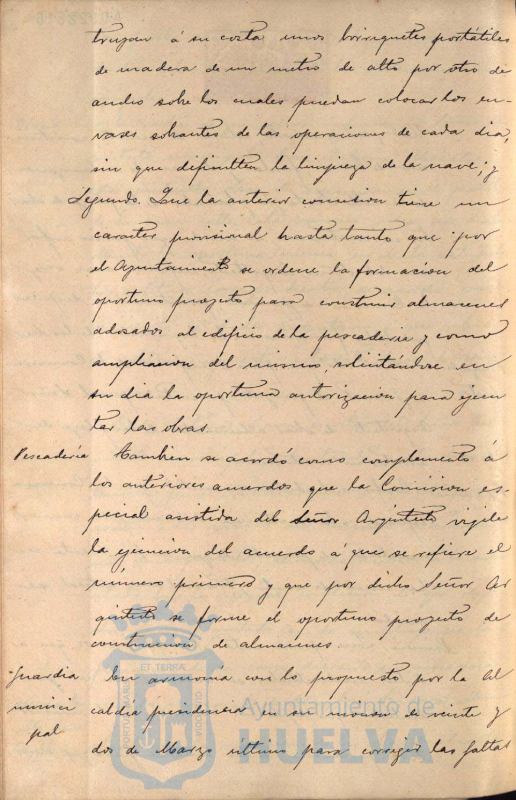 truyan á su costa unos borriquetes portátiles
de madera de un metro de alto por otro de
ancho sobre los cuales puedan colocar los en-
vases sobrantes de las operaciones de cada dia,
sin que dificulten la limpieza de la nave; y
Segundo. Que la anterior concesion tiene un
caracter provisional hasta tanto que por
el Ayuntamiento se ordene la formacion del
oportuno proyecto para construir almacenes
adosados al edificio de la pescaderia y como
ampliacion del mismo, solicitándose en
su dia la oportuna autorizacion para ejecu
tar las obras.
Pescadería
Tambien se acordó como complemento á
los anteriores acuerdos que la Comision es-
pecial asistida del Señor Arquitecto vigile
la ejecucion del acuerdo á que se refiere el
número primero y que por dicho Señor Ar
quitecto se forme el oportuno proyecto de
construccion de almacenes
Guardia
munici
pal
En armonia con lo propuesto por la Al
caldia presidencia en su mocion de veinte y
dos de Marzo ultimo para corregir las faltas
ET TERRÆ
Ayuntamiento de
HUELVA